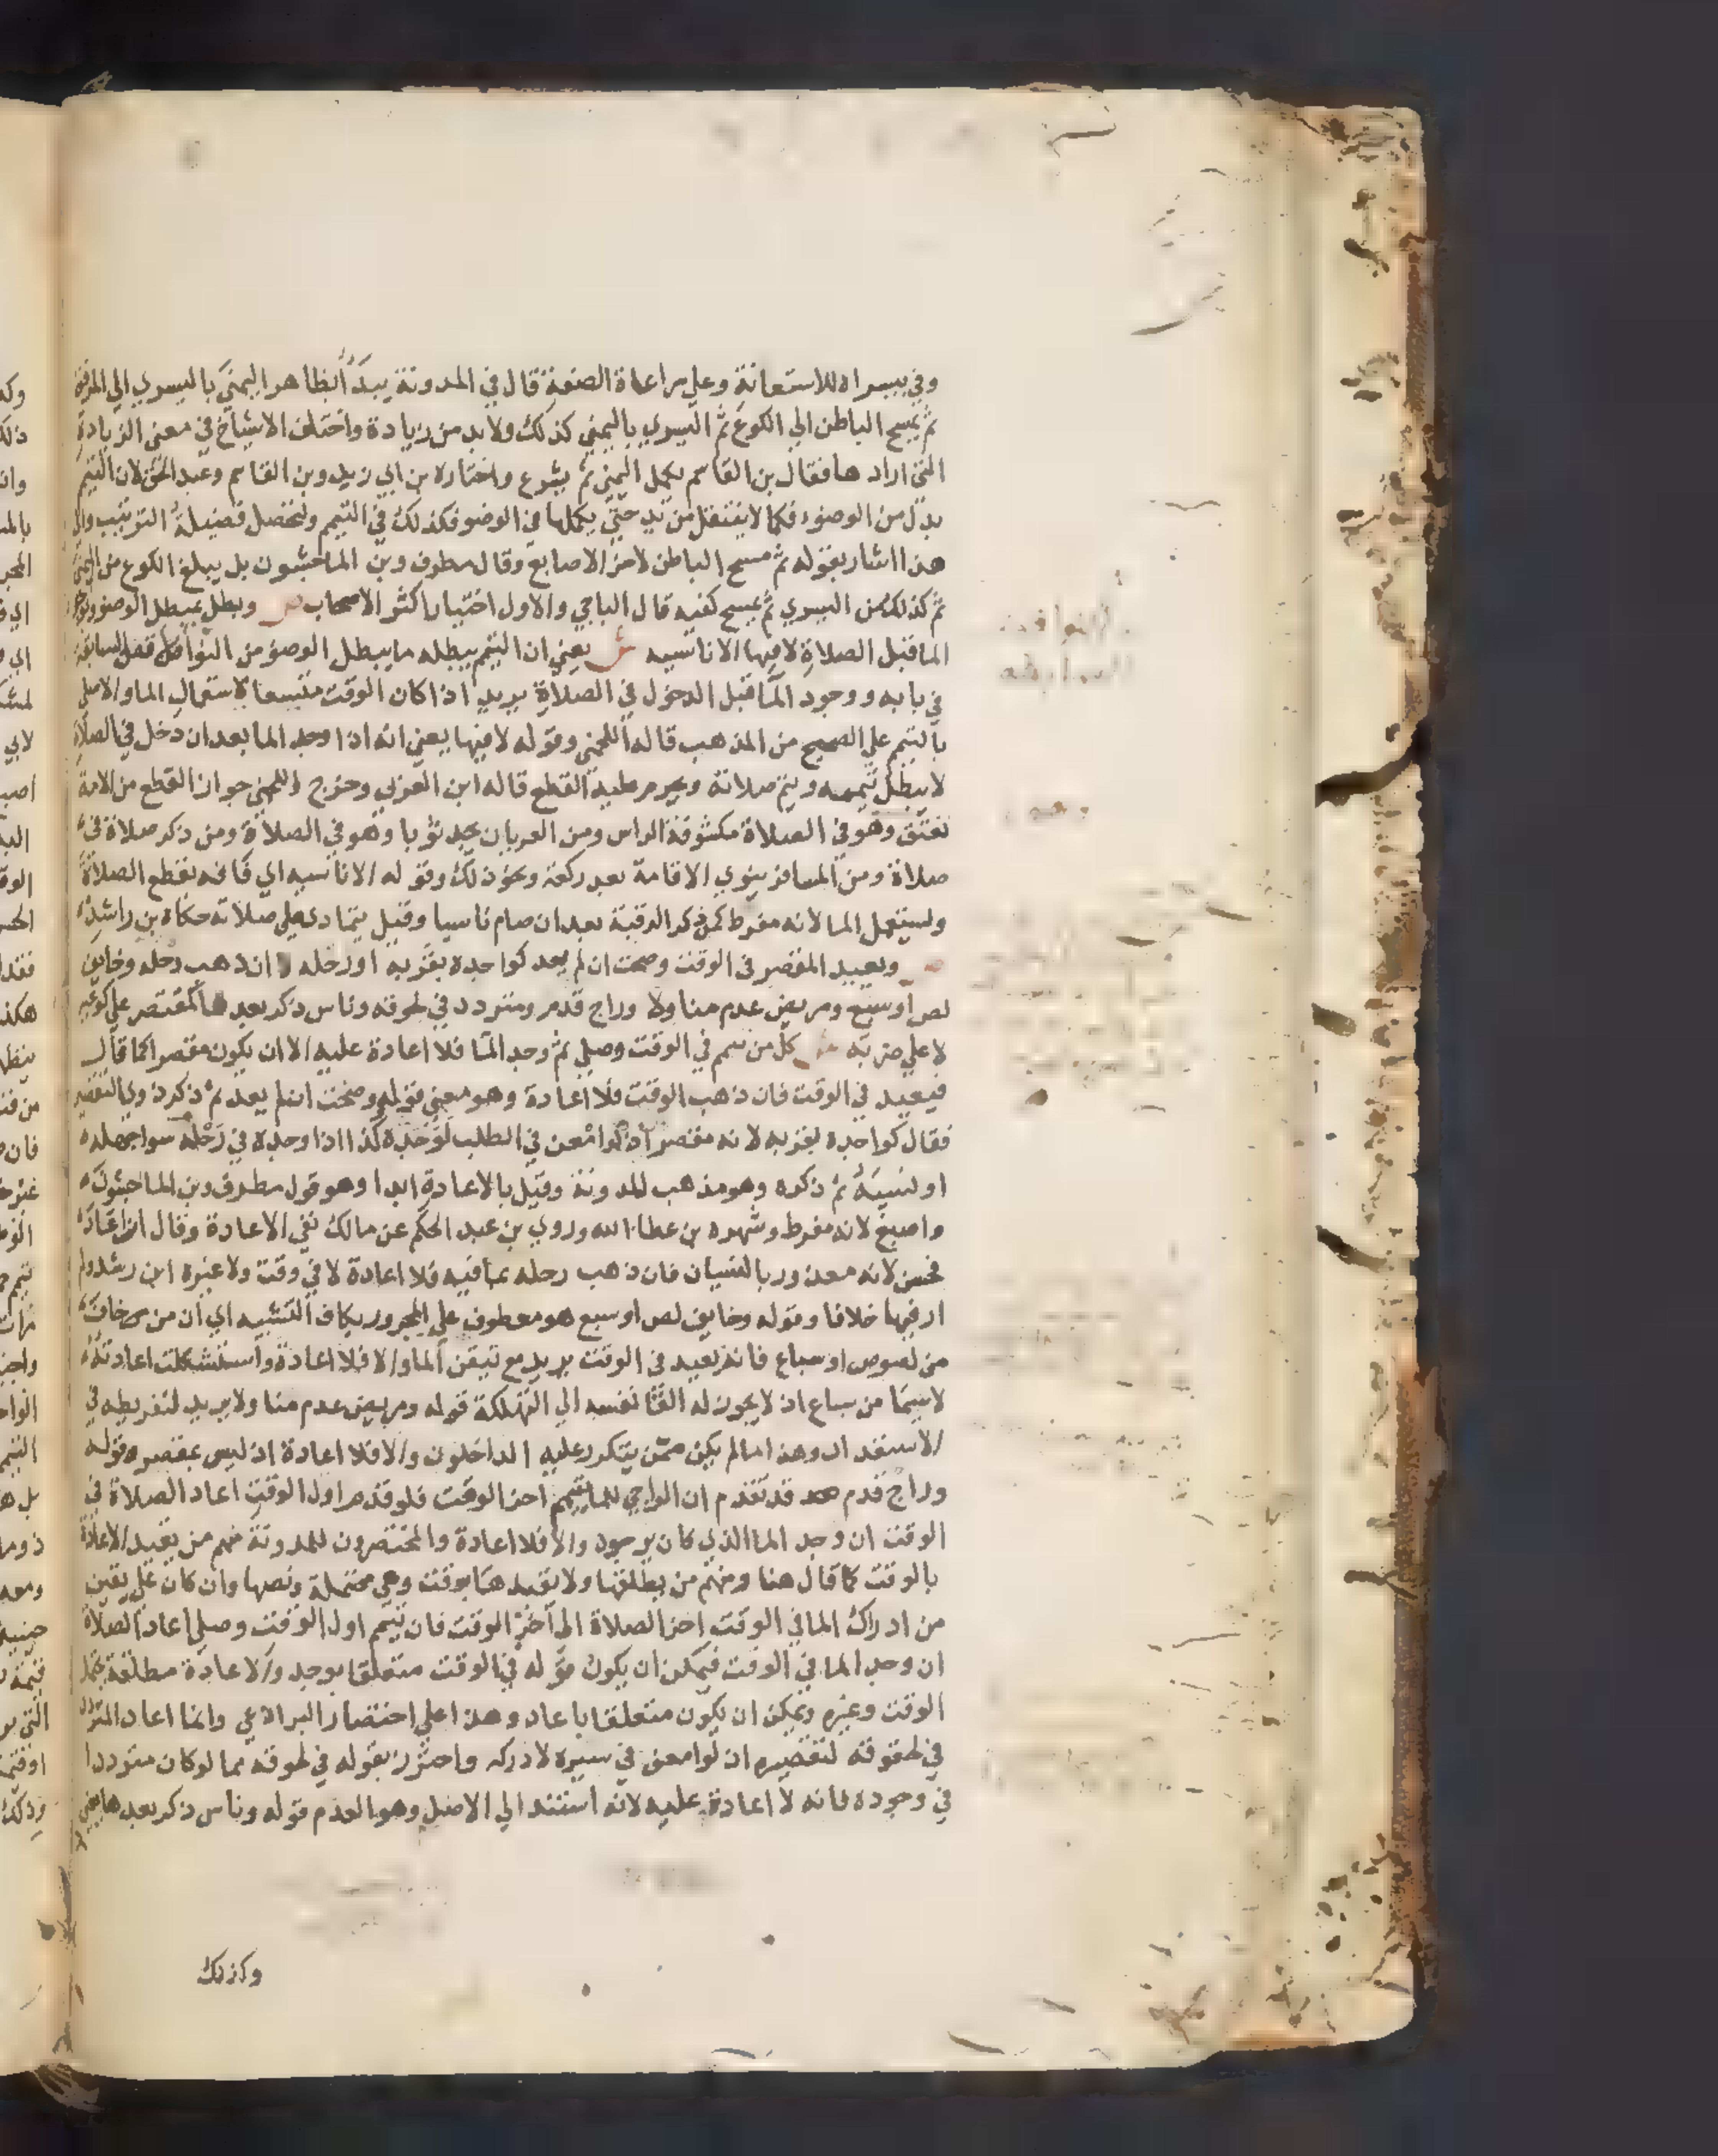 وفي يسراه للاستعانة وعلي مراعاة الصفة قال في المدونة يبدأ بظاهر اليمني باليسري الي المرفق
ثم يمسح الباطن الي الكوع ثم اليسري باليمني كذلك ولا بد من زيادة واختلف الاشياخ في معني الزيادة
التي ارادها فقال بن القاسم يكمل اليمني ثم يشرع واختاره بن ابي زيد وبن القاسم وعبد الحق لان التيمم
بدل من الوضوء فكما لا ينتقل من يد حتي يكملها في الوضو فكذلك في التيمم ولتحصل فضيلة الترتيب والي
هذا اشار بقوله ثم مسح الباطن لاخر الاصابع وقال مطرف وبن الماجشون بل يبلغ الكوع من اليمني
ثم كذلك من اليسري ثم يمسح كفيه قال الباجي والاول اختيار اكثر الاصحاب ص وبطل بمبطل الوضو وبوجود
الما قبل الصلاة لا فيها الا ناسيه ش يعني ان التيمم يبطله ما يبطل الوضو من النواقض السابقة
في بابه ووجود الما قبل الدخول في الصلاة يريد اذا كان الوقت متسعا لاستعمال الما والا صلي
بالتيمم علي الصحيح من المذهب قاله اللخمي وقوله لا فيها يعني انه اذا وجد الما بعد ان دخل في الصلاة
لا يبطل تيممه ويتم صلاته ويحرم عليه القطع قاله ابن العربي وخرج اللخمي جواز القطع من الامة
تعتق وهو في الصلاة مكشوفة الراس ومن العريان يجد ثوبا وهو في الصلاة ومن ذكر صلاة في
صلاة ومن المسافر ينوي الاقامة بعد ركعة ونحو ذلك وقوله الا ناسيه اي فانه يقطع الصلاة
ويستعمل الما لانه مفرط كمن ذكر الرقبة بعد ان صام ناسيا وقيل يتمادي علي صلاته حكاه بن راشد
ص ويعيد المقصر في الوقت وصحت ان لم يعد كواجده بقربه او رحله لا ان ذهب رحله وخايف
لص او سبع ومريض عدم مناولا وراج قدم ومتردد في لحوقه وناس ذكر بعدها كمقتصر علي كوعيه
لا علي ضربه ش كل من تيمم في الوقت وصلي ثم وجد الما فلا اعادة عليه الا ان يكون مقصرا كما قال
فيعيد في الوقت فان ذهب الوقت فلا اعادة وهو معني قوله وصحت ان لم يعد ثم ذكر ذوي التقصير
فقال كواجده بقربه لانه مقصر اذ لو امعن في الطلب لوجده كذا اذا وجده في رحله سوا جهله
او نسيه ثم ذكره وهو مذهب المدونة وقيل بالاعادة ابدا وهو قول مطرف وبن الماجشون
واصبغ لانه مفرط وشهره بن عطا الله وروي بن عبد الحكم عن مالك نفي الاعادة وقال ان اعاد
فحسن لانه معذور بالنسيان فان ذهب رحله بما فيه فلا اعادة لا في وقت ولا غيره ابن رشد ولم
ار فيها خلافا وقوله وخايف لص او سبع هو معطوف علي المجرور بكاف التشبيه اي ان من خاف
من لصوص او سباع فانه يعيد في الوقت يريد مع تيقن الما والا فلا اعادة واستشكلت اعادته
لا سيما من سباع اذ لا يجوز له القا نفسه الي التهلكة قوله ومريض عدم مناولا يريد لتفريطه في
الاستعداد وهذا ما لم يكن ممن يتكرر عليه الداخلون والا فلا اعادة اذ ليس بمقصر وقوله
وراج قدم قد تقدم ان الراجي للما يتيمم اخر الوقت فلو قدم اول الوقت اعاد الصلاة في
الوقت ان وجد الما الذي كان يرجوه والا فلا اعادة والمختصرون للمدونة منهم من يقيد الاعادة
بالوقت كما قال هنا ومنهم من يطلقها ولا يقيدها بوقت وهي محتملة ونصها وان كان علي يقين
من ادراك الما في الوقت اخر الصلاة الي آخر الوقت فان تيمم اول الوقت وصلي اعاد الصلاة
ان وجد الما في الوقت فيمكن ان يكون قوله في الوقت متعلقا بوجد والاعادة مطلقة
الوقت وغيره ويمكن ان يكون متعلقا باعاد وهذا علي اختصار البراذعي وانما اعاد المتردد
في لحوقه لتقصيره اذ لو امعن في سيره لادركه واحترز بقوله في لحوقه مما لو كان مترددا
في وجوده فانه لا اعادة عليه لانه استند الي الاصل وهو العدم قوله وناس ذكر بعدها يعني
وكذلك